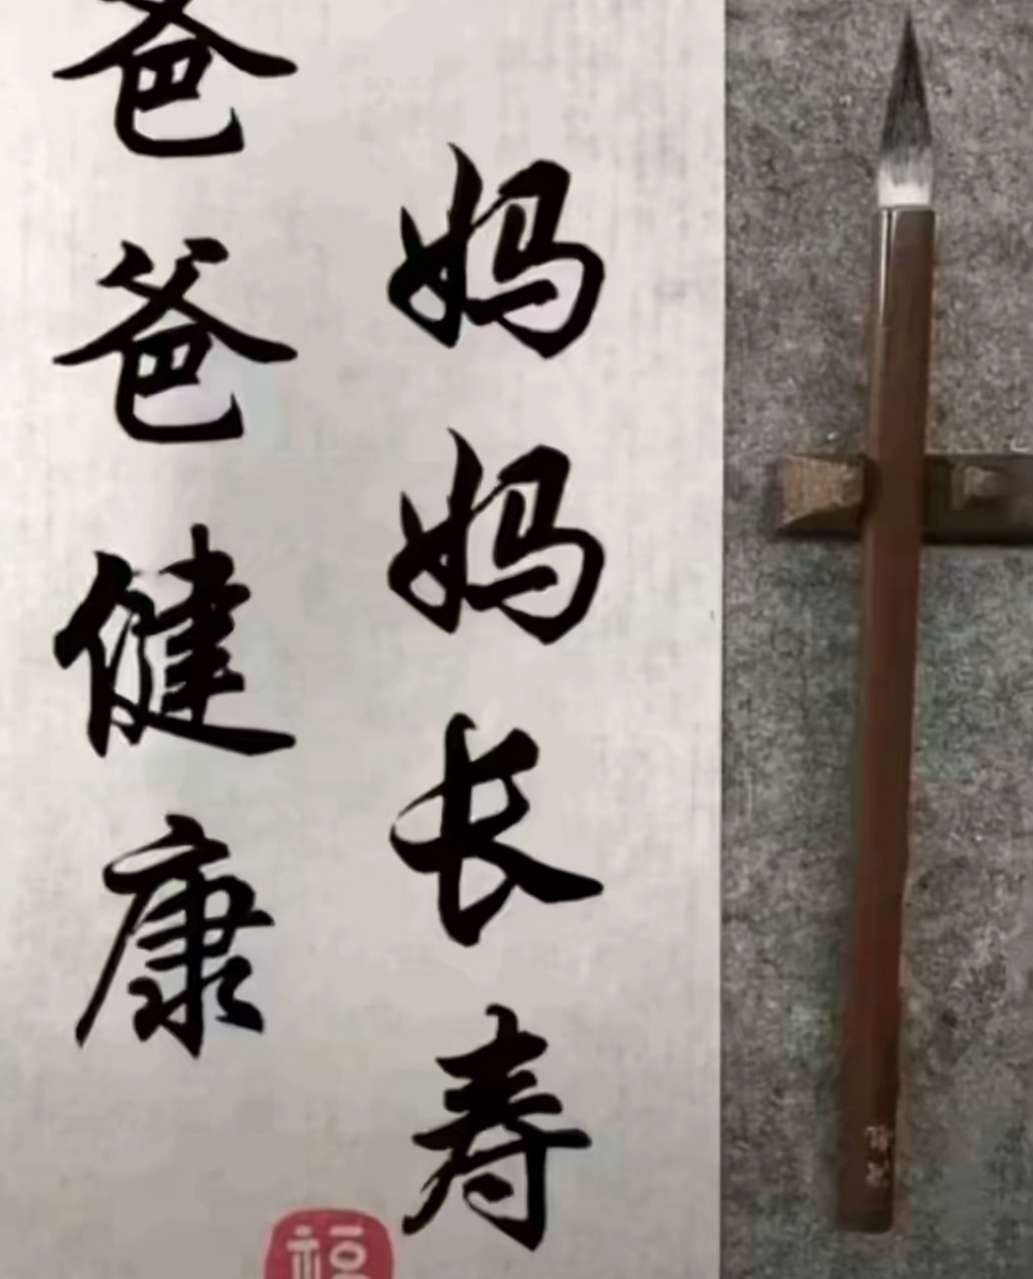 妈妈长寿
爸爸健康
福